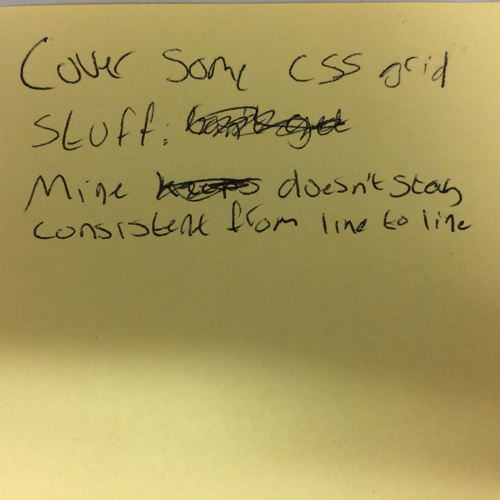 Cover some CSS grid
stuff:
Mine doesn't stay
consistent from line to line